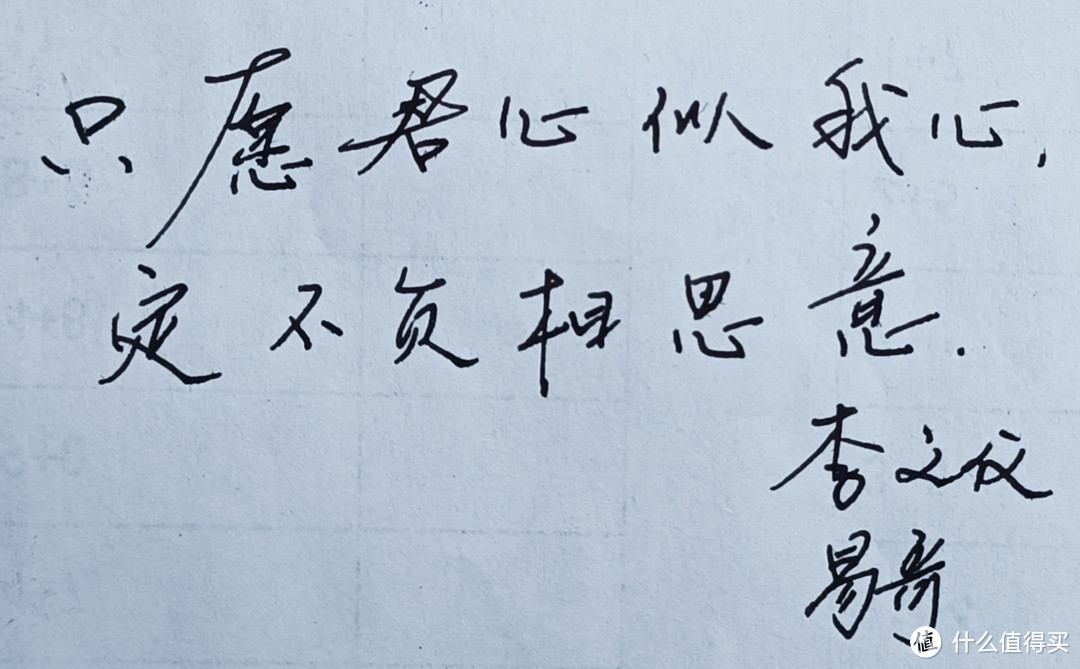 只愿君心似我心,
定不负相思意.
李之仪
易哥
值 什么值得买